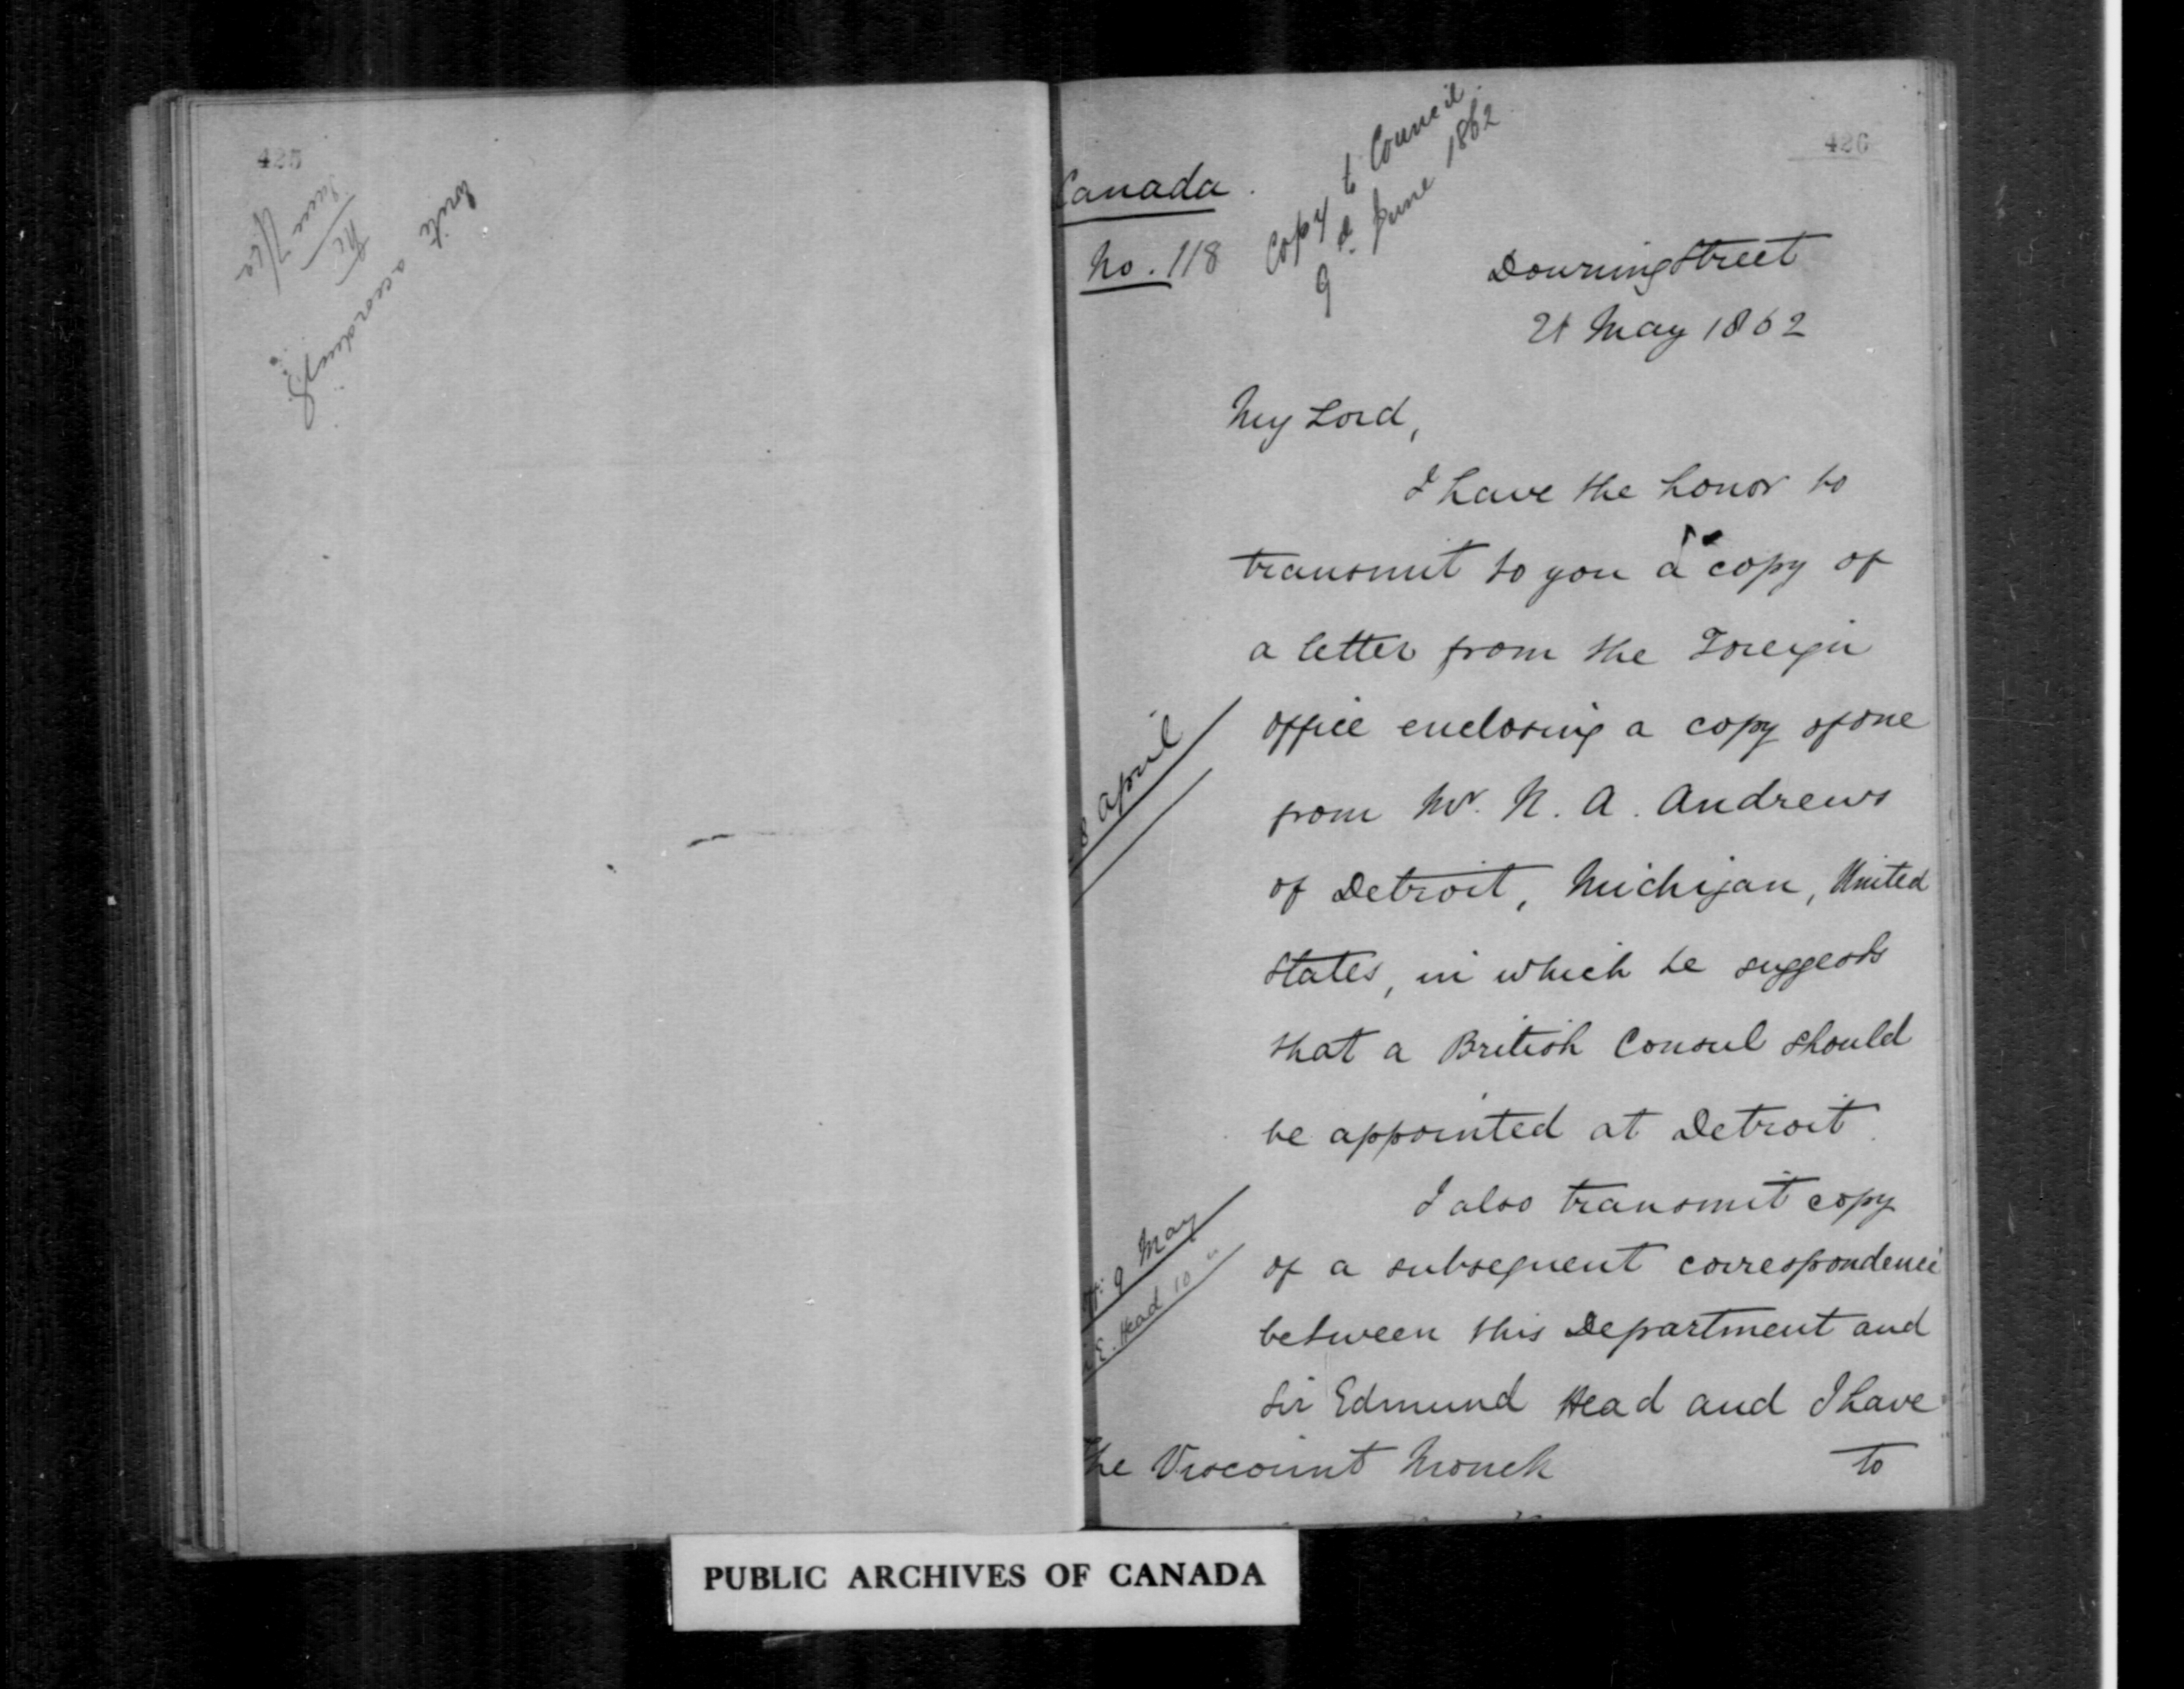 425
Write accordingly
June
426
Canada.
No. 118
Copy to Council.
9 June 1862
Downing Street
21 May 1862
My Lord,
I have the honor to
transmit to you a copy of
a letter from the Foreign
office enclosing a copy of one
8 April
from Mr. N. A. Andrews
of Detroit, Michigan, United
States, in which he suggests
that a British Consul should
be appointed at Detroit.
I also transmit copy
9 May
of a subsequent correspondence
E. Head 10 "
between this Department and
Sir Edmund Head and I have
The Viscount Monck
to
PUBLIC ARCHIVES OF CANADA